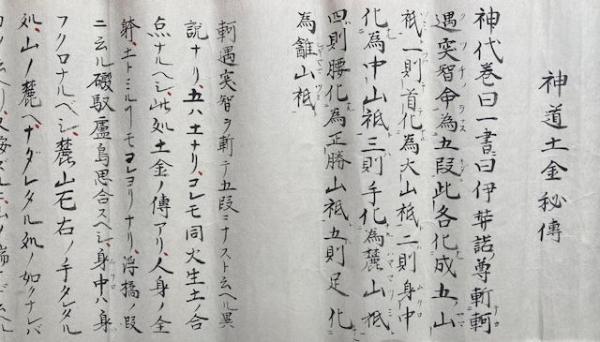 神道土金秘傳
神代巻曰一書曰伊弉諾尊斬軻
遇突智命為五段此各化成五山
祇一則首化為大山祇二則身中
化為中山祇三則手化為麓山祇
四則腰化為正勝山祇五則足化
為䨄山祇
軻遇突智ヲ斬テ五段ニナスト云ヘル異
說ナリ、五ハ土ナリ、コレモ同火生土ノ合
点ナルヘシ、此処土金ノ傳アリ、人身ノ全
躰、土トミルヿモコレヨリナリ、浮橋ノ段
ニ云ル磤馭盧島思合スヘシ、身中ハ身
フクロナルベシ、麓山モ右ノ手タレタル
処、山ノ麓ヘナダレタル処ノ如クナレバ